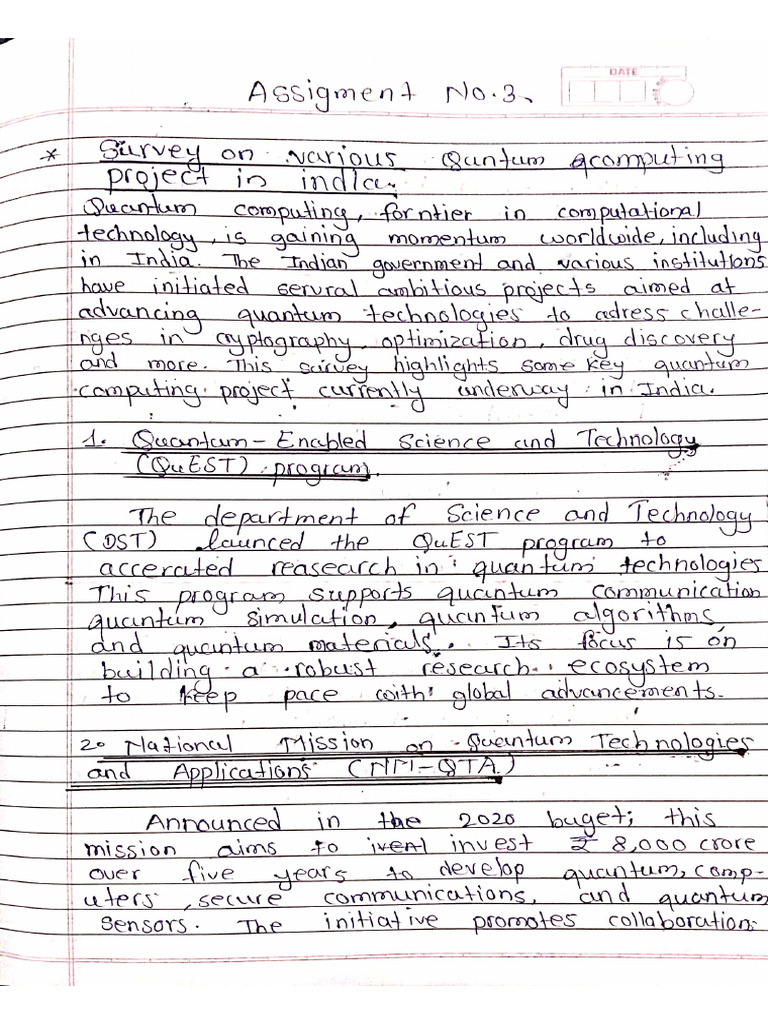 DATE
Assigment No.3.
* Survey on various Quntum computing
project in india.
Quantum computing, forntier in computational
technology, is gaining momentum worldwide, including
in India. The Indian government and various institutions
have initiated servral ambitious projects aimed at
advancing quantum technologies to adress challe-
nges in cryptography, optimization, drug discovery
and more. This survey highlights some key quantum
computing project currently underway in India.
1. Quantum-Enabled Science and Technology
(QuEST) program.
The department of Science and Technology
(DST) launced the QuEST program to
accerated reasearch in quantum technologies
This program supports quantum communication
quantum simulation, quantum algorithms,
and quantum materials. Its focus is on
building a robust research ecosystem
to keep pace with global advancements.
2. National Mission on Quantum Technologies
and Applications (NM-QTA)
Announced in the 2020 buget; this
mission aims to invest ₹ 8,000 crore
over five years to develop quantum, comp-
uters, secure communications, and quantum
sensors. The initiative promotes collaborations